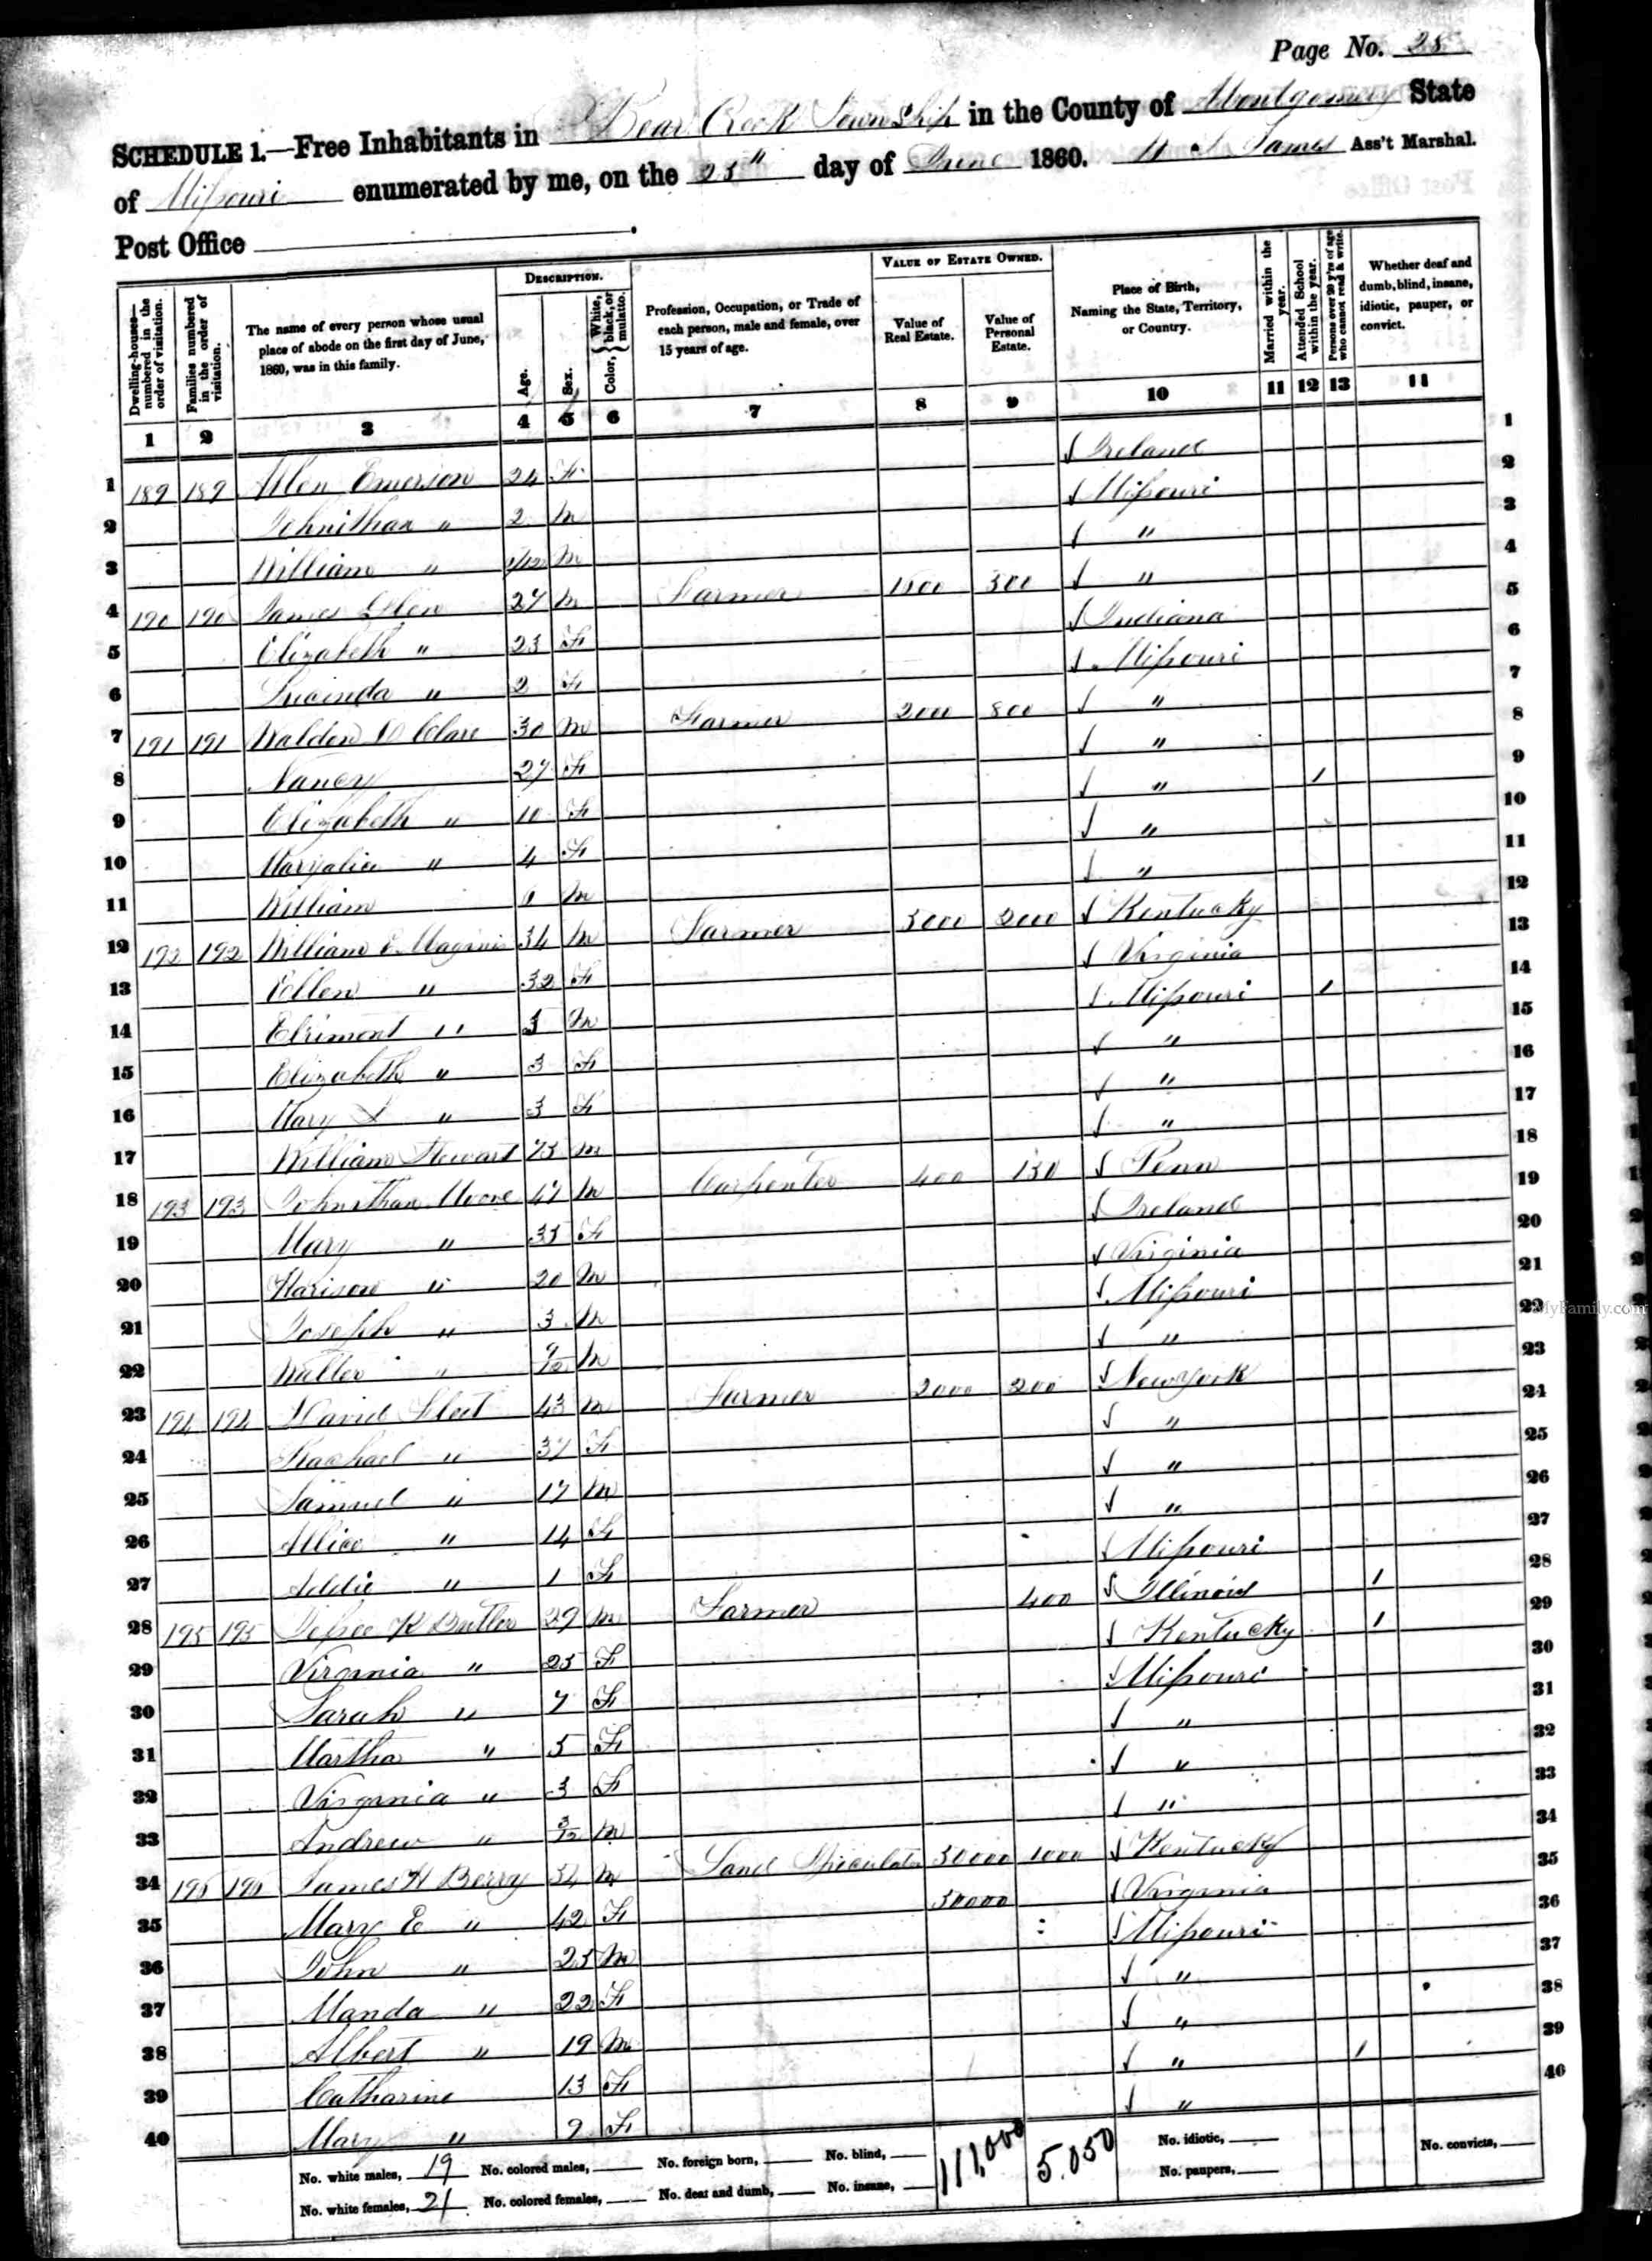 Page No. 28
SCHEDULE 1.—Free Inhabitants in Bear Creek Township in the County of Montgomery State
of Missouri enumerated by me, on the 25" day of June 1860. James Ass't Marshal.
Post Office
Dwelling-houses—numbered in the order of visitation. Families numbered in the order of visitation. The name of every person whose usual place of abode on the first day of June, 1860, was in this family. DESCRIPTION. Age. Sex. Color, { White, black, or mulatto. Profession, Occupation, or Trade of each person, male and female, over 15 years of age. VALUE OF ESTATE OWNED. Value of Real Estate. Value of Personal Estate. Place of Birth, Naming the State, Territory, or Country. Married within the year. Attended School within the year. Persons over 20 y'rs of age who cannot read & write. Whether deaf and dumb, blind, insane, idiotic, pauper, or convict.
1 2 3 4 5 6 7 8 9 10 11 12 13 14
1 189 189 Emerson 24 F Ireland 1
2 Johnithan " 2 M Missouri 2
3 William " M " 3
4 190 190 James 27 M Farmer 1500 300 " 4
5 Elizabeth " 23 F Indiana 5
6 Lucinda " 2 F Missouri 6
7 191 191 Walden 30 M Farmer 2000 800 " 7
8 Nancy 27 F " 8
9 Elizabeth " 10 F " 1 9
10 " 4 F " 10
11 William M " 11
12 192 192 William 34 M Farmer 5000 2000 Kentucky 12
13 Ellen " 32 F Virginia 13
14 " 5 M Missouri 1 14
15 Elizabeth " 3 F " 15
16 Mary " 3 F " 16
17 William Stewart 75 M " 17
18 193 193 Johnithan Moore 47 M Carpenter 400 150 Penn 18
19 Mary " 35 F Ireland 19
20 Harison " 20 M Virginia 20
21 Joseph " 3 M Missouri 21
22 Walter " 9/12 M " 22
23 194 194 David 43 M Farmer 2000 200 New York 23
24 Rachael " 37 F " 24
25 Samuel " 17 M " 25
26 Allice " 14 F " 26
27 Addie " 1 F Missouri 27
28 195 195 Jesse K Butler 29 M Farmer 400 Illinois 1 28
29 Virginia " 25 F Kentucky 1 29
30 Sarah " 7 F Missouri 30
31 Martha " 5 F " 31
32 Virginia " 3 F " 32
33 Andrew " 3/12 M " 33
34 196 196 James H Berry 54 M Land Speculator 50000 1000 Kentucky 34
35 Mary E " 42 F 50000 Virginia 35
36 John " 25 M Missouri 36
37 Manda " 22 F " 37
38 Albert " 19 M " 38
39 Catharine 13 F " 1 39
40 Mary " 9 F " 40
No. white males, 19 No. colored males, No. foreign born, No. blind, 111,000 5,050 No. idiotic, No. convicts,
No. white females, 21 No. colored females, No. deaf and dumb, No. insane, No. paupers,
MyFamily.com